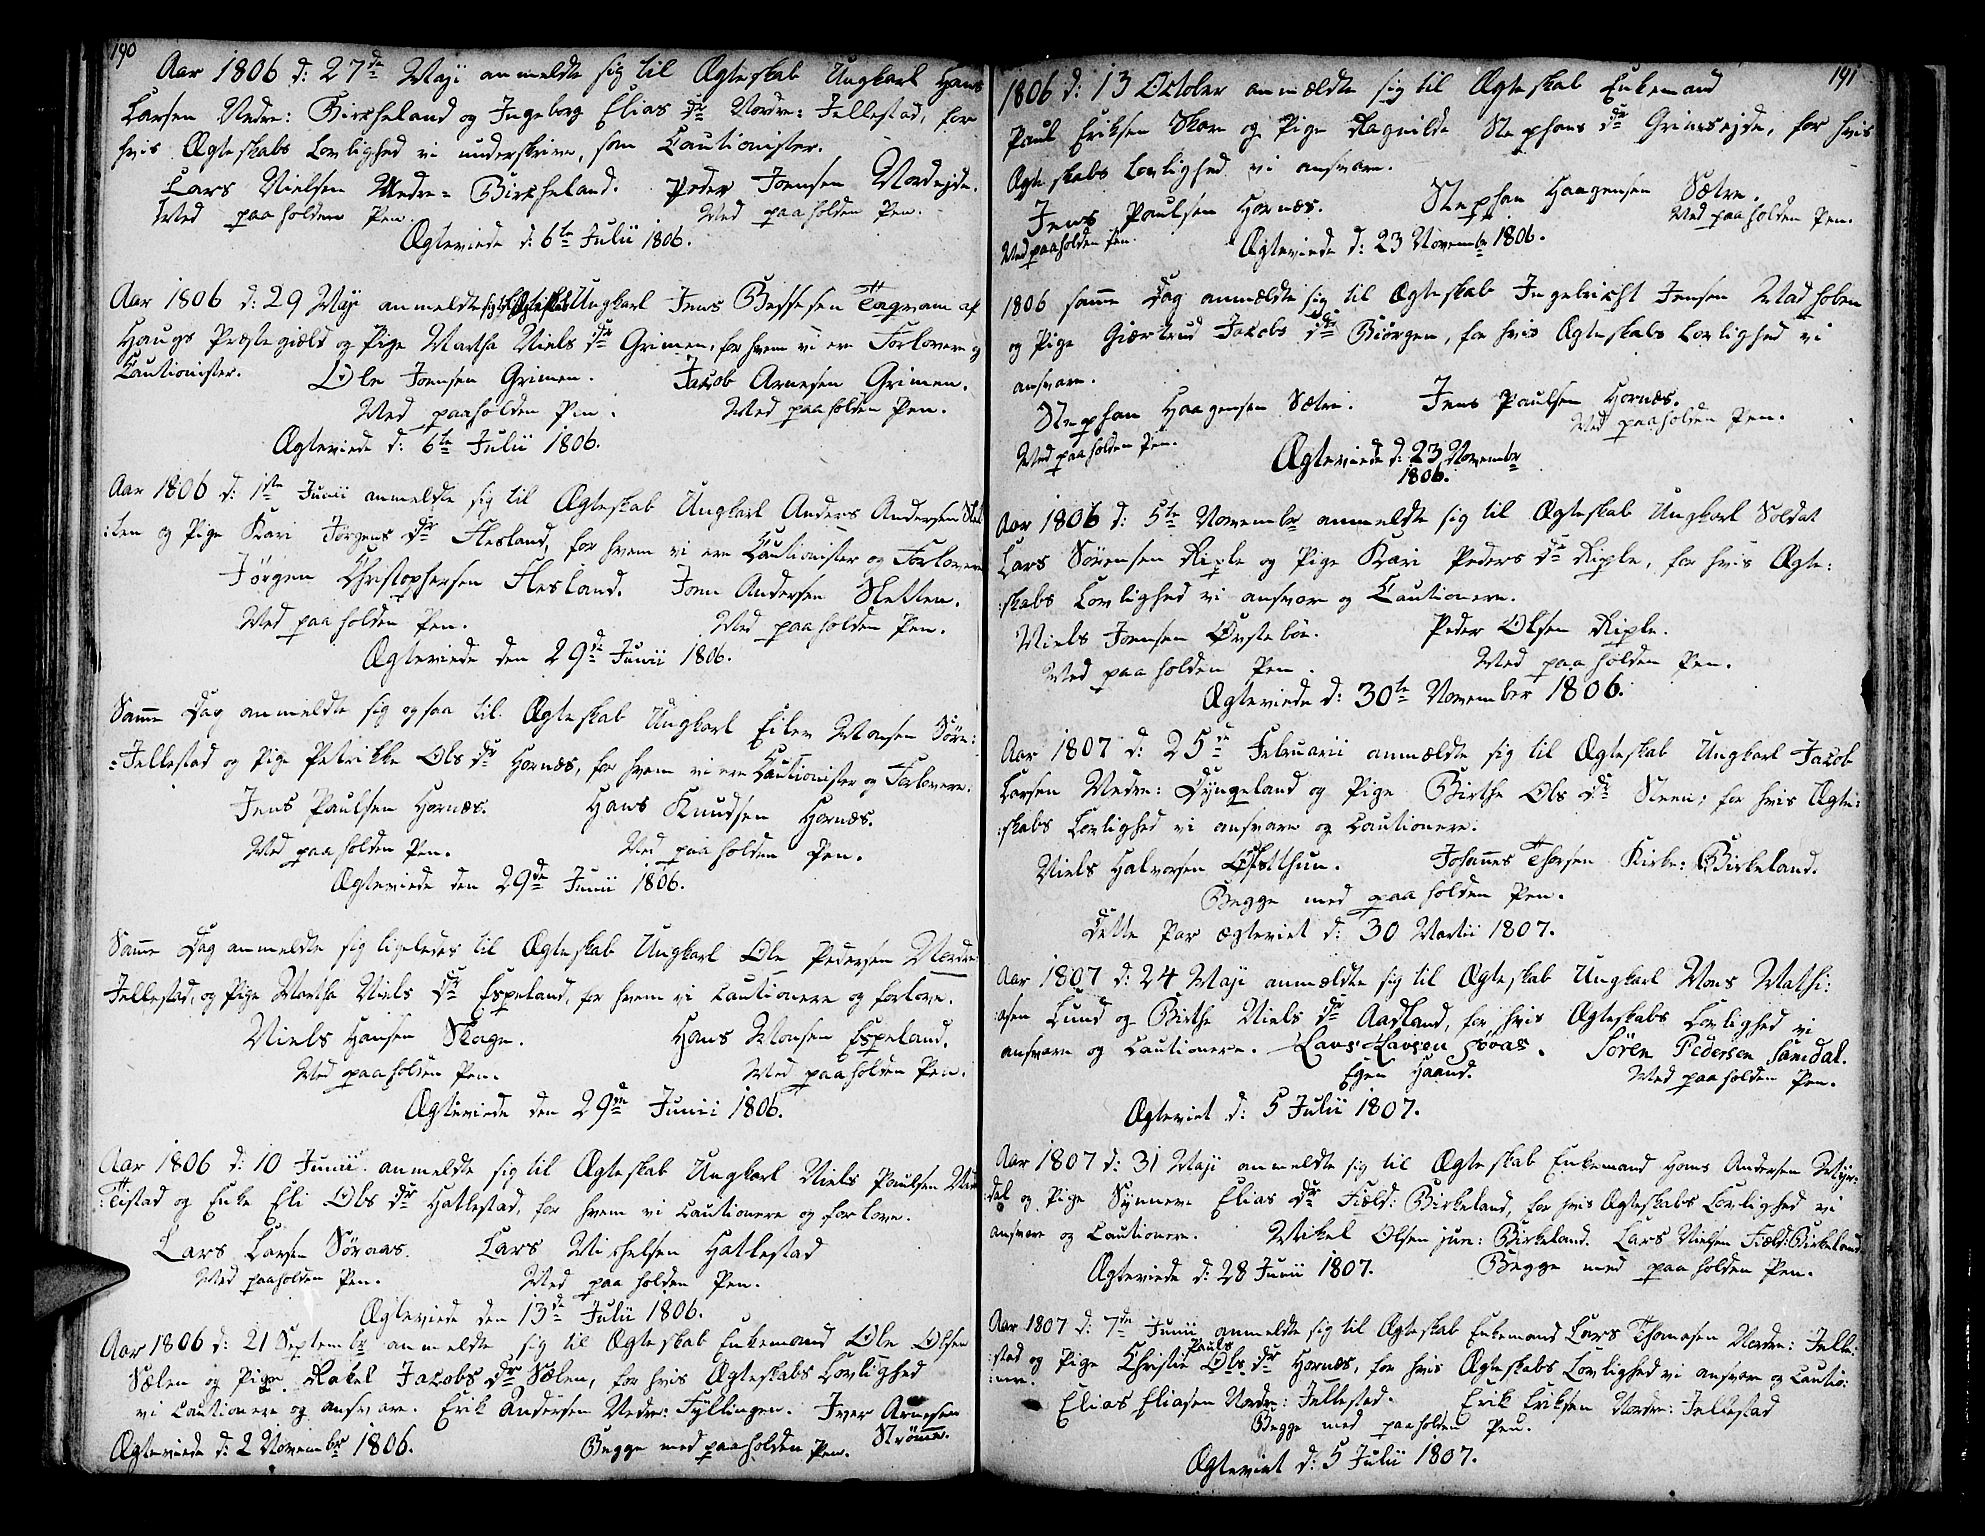 190
Aar 1806 d: 27de Maji anmeldte sig til Ægteskab Ungkarl Hans
Larsen Nedre: Birkeland og Ingeborg Elias dr Nordre: Jellestad, for
hvis Ægteskabs Lovlighed vi underskrive, som Cautionister.
Lars Nielsen Nedre= Birkeland. Peder Joensen
Med paaholden Pen. Med paaholden Pen.
Ægteviede d: 6te Julii 1806.
Aar 1806 d: 29 Maji anmeldte sig til Ægteskab Ungkarl Jens af
Haugs Præstegiæld og Pige Martha Niels dr Grimen, for hvem vi ere Forlovere og
Cautionister. Ole Joensen Grimen. Jacob Arnesen Grimen.
Med paaholden Pen. Med paaholden Pen.
Ægteviede d: 6te Julii 1806.
Aar 1806 d: 1ste Junii anmeldte sig til Ægteskab Ungkarl Anders Andersen Slet
:ten og Pige Kari Jørgens dr Flesland, for hvem vi ere Cautionister og Forlovere
Jørgen Christophersen Flesland. Joen Andersen Sletten.
Med paaholden Pen. Med paaholden Pen.
Ægteviede den 29de Junii 1806.
Samme Dag anmeldte sig ogsaa til Ægteskab Ungkarl Eilev Monsen Søre:
=Jellestad og Pige Petrikke Ols dr Hornæs, for hvem vi ere Cautionister og Forlovere.
Jens Paulsen Hornæs. Hans Knudsen Hornæs.
Med paaholden Pen. Med paaholden Pen.
Ægteviede den 29de Junii 1806.
Samme Dag anmeldte sig ligeledes til Ægteskab Ungkarl Ole Pedersen Nordre
Jellestad, og Pige Martha Niels dr Espeland, for hvem vi cautionere og forlove.
Niels Hansen Skage. Hans Monsen Espeland.
Med paaholden Pen. Med paaholden Pen.
Ægteviede den 29de Junii 1806.
Aar 1806 d: 10 Junii anmeldte sig til Ægteskab Ungkarl Niels Paulsen
:Tistad og Enke Eli Ols dr Hatlestad, for hvem vi cautionere og forlove.
Lars Larsen Søraas. Lars Michelsen Hatlestad
Med paaholden Pen. Med paaholden Pen.
Ægteviede den 13de Julii 1806.
Aar 1806 d: 21 Septembr anmeldte sig til Ægteskab Enkemand Ole Olsen
Sælen og Pige Rakel Jacobs dr Sælen, for hvis Ægteskabs Lovlighed
vi cautionere og ansvare. Erik Andersen Nedre: Fyllingen. Iver Arnesen
Ægteviede d: 2 Novembr 1806. Begge med paaholden Pen. Strømme.
191
1806 d: 13 October anmældte sig til Ægteskab Enkemand
Paul Eriksen Skare og Pige Ragnilde Stephans dr Grimseide, for hvis
Ægteskabs Lovlighed vi ansvare.
Jens Paulsen Hornæs. Stephan Haagensen Sætre.
Med paaholden Pen. Med paaholden Pen.
Ægteviede d: 23 Novembr 1806.
1806 samme Dag anmældte sig til Ægteskab Ingebricht Jensen Madhoben
og Pige Giærtrud Jacobs dr Biørgen, for hvis Ægteskabs Lovlighed vi
ansvare.
Stephan Haagensen Sætre. Jens Paulsen Hornæs.
Med paaholden Pen. Med paaholden Pen.
Ægteviede d: 23 Novembr
1806.
Aar 1806 d: 5te Novembr anmeldte sig til Ægteskab Ungkarl Soldat
Lars Sørensen Riple og Pige Kari Peders dr Riple, for hvis Ægte:
:skabs Lovlighed vi ansvare og Cautionere.
Niels Joensen Øvstebøe. Peder Olsen Riple.
Med paaholden Pen. Med paaholden Pen.
Ægteviede d: 30te November 1806.
Aar 1807 d: 25de Februarii anmældte sig til Ægteskab Ungkarl Jacob
Larsen Nedre: Dyngeland og Pige Birthe Ols dr Steen; for hvis Ægte:
:skabs Lovlighed vi ansvare og cautionere.
Niels Halvorsen Johannes Thorsen Kirke: Birkeland.
Begge med paaholden Pen.
Dette Par ægteviet d: 30 Martii 1807.
Aar 1807 d: 24 Maji anmældte sig til Ægteskab Ungkarl Mons Mathi:
:asen Lund og Birthe Niels dr Aadland, for hvis Ægteskabs Lovlighed vi
ansvare og cautionere. Lars Larsen Søraas. Sören Pedersen Sandal.
Egen Haand. Med paaholden Pen.
Ægteviet d: 5 Julii 1807.
Aar 1807 d: 31 Maji anmeldte sig til Ægteskab Enkemand Hans Andersen Myr:
:dal og Pige Synneve Elias dr Field: Birkeland, for hvis Ægteskabs Lovlighed vi
ansvare og Cautionere. Mikel Olsen jun: Birkeland. Lars Nielsen Field: Birkeland
Ægteviede d: 28 Junii 1807. Begge med paaholden Pen.
Aar 1807 d: 7de Junii anmeldte sig til Ægteskab Enkemand Lars Thomasen Nordre: Jelle:
Pauls
:stad og Pige Christie Ols dr Hornæs, for hvis Ægteskabs Lovlighed vi ansvare og Cautio:
:nere. Elias Eliasen Nordre: Jellestad. Erik Eriksen Nordre: Jellestad
Begge med paaholden Pen.
Ægteviet d: 5 Julii 1807.